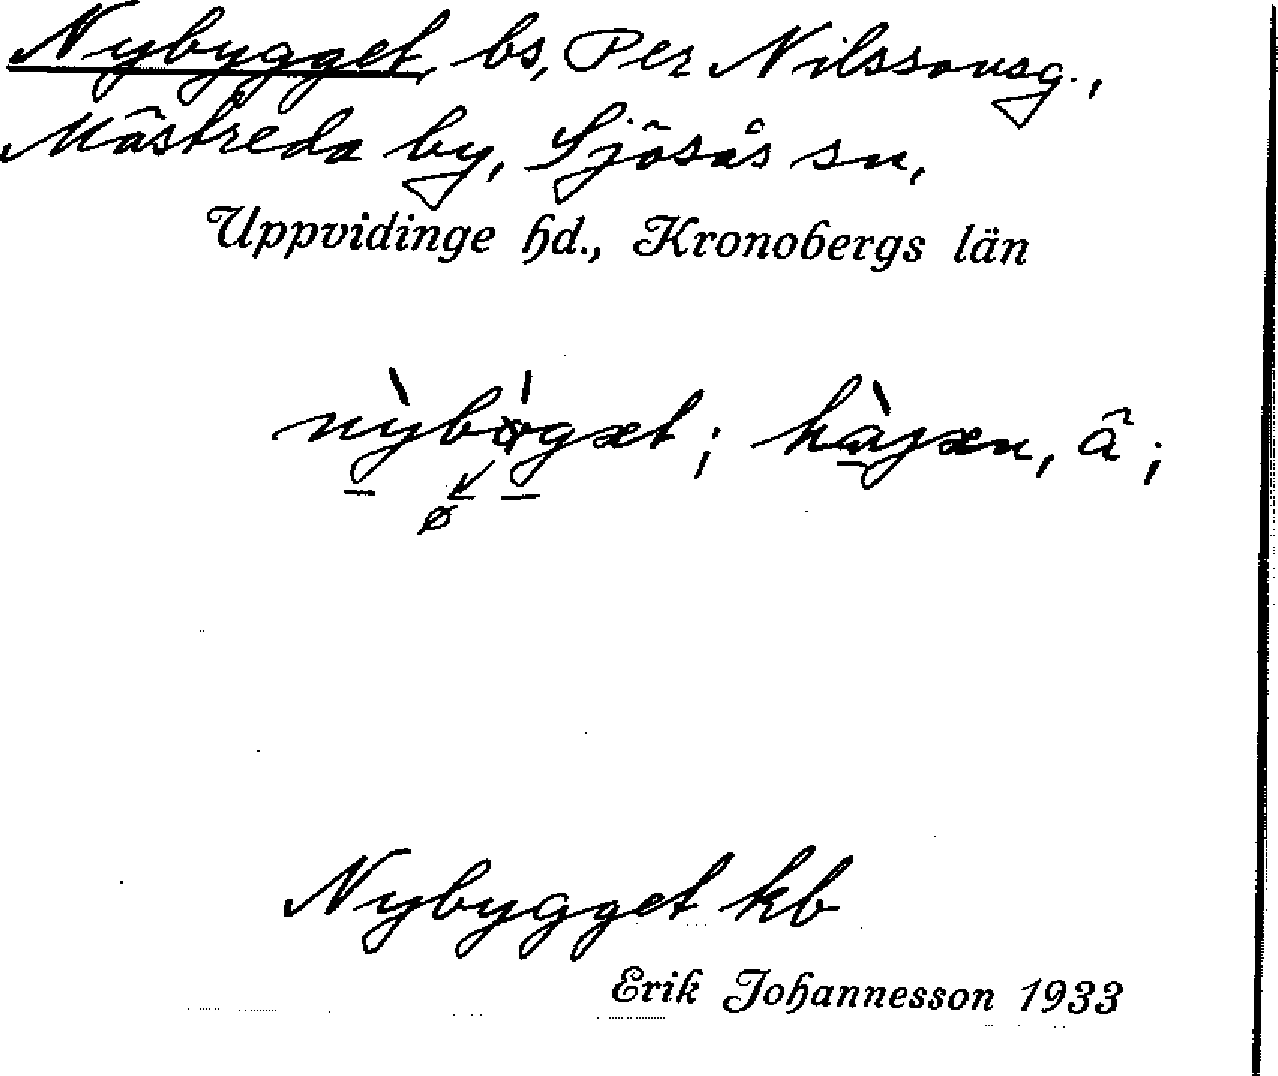 Nybygget, bs, Per Nilssonsg.,
Mästreda by, Sjösås sn,
Uppvidinge hd., Kronobergs län
Nybygget kb
Erik Johannesson 1933